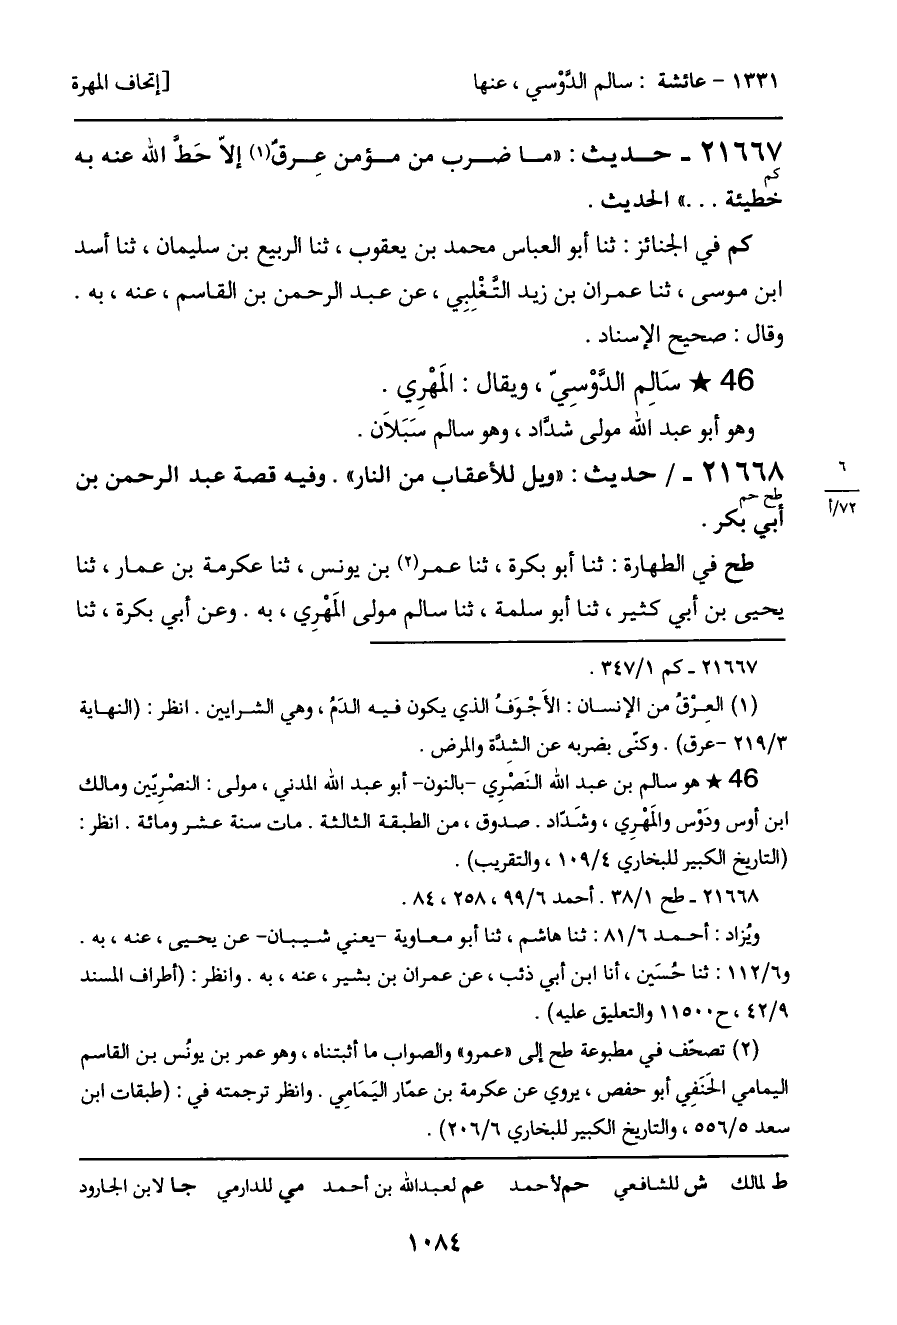 ١٣٣١ - عائشة : سالم الدَّوْسي ، عنها [إتحاف المهرة
٢١٦٦٧ - حديث : «ما ضرب من مؤمن عِرقٌ(١) إلاّ حَطَّ الله عنه به
كم
خطيئة ...» الحديث .
كم في الجنائز : ثنا أبو العباس محمد بن يعقوب ، ثنا الربيع بن سليمان ، ثنا أسد
ابن موسى ، ثنا عمران بن زيد التَّغْلِبِي ، عن عبد الرحمن بن القاسم ، عنه ، به .
وقال : صحيح الإسناد .
46 ★ سَالِم الدَّوْسِيّ ، ويقال : المَهْرِي .
وهو أبو عبد الله مولى شدَّاد ، وهو سالم سَبَلاَن .
٢١٦٦٨ - / حديث : «ويل للأعقاب من النار» . وفيه قصة عبد الرحمن بن
٦
٧٢/أ
طح حم
أبي بكر .
طح في الطهارة : ثنا أبو بكرة ، ثنا عمر(٢) بن يونس ، ثنا عكرمة بن عمار ، ثنا
يحيى بن أبي كثير ، ثنا أبو سلمة ، ثنا سالم مولى المَهْرِي ، به . وعن أبي بكرة ، ثنا
٢١٦٦٧ - كم ٣٤٧/١ .
(١) العِرْقُ من الإنسان : الأَجْوَفُ الذي يكون فيه الدَمُ ، وهي الشرايين . انظر : (النهاية
٢١٩/٣ -عرق) . وكنّى بضربه عن الشِدَّة والمرض .
46 ★ هو سالم بن عبد الله النَصْرِي -بالنون- أبو عبد الله المدني ، مولى : النصْرِيّين ومالك
ابن أوس ودَوْس والمَهْرِي ، وشَدَّاد . صدوق ، من الطبقة الثالثة . مات سنة عشر ومائة . انظر :
(التاريخ الكبير للبخاري ١٠٩/٤ ، والتقريب) .
٢١٦٦٨ - طح ٣٨/١ . أحمد ٩٩/٦ ، ٢٥٨ ، ٨٤ .
ويُزاد : أحمد ٨١/٦ : ثنا هاشم ، ثنا أبو معاوية -يعني شيبان- عن يحيى ، عنه ، به .
و١١٢/٦ : ثنا حُسَين ، أنا ابن أبي ذئب ، عن عمران بن بشير ، عنه ، به . وانظر : (أطراف المسند
٤٢/٩ ، ح١١٥٠٠ والتعليق عليه) .
(٢) تصحّف في مطبوعة طح إلى «عمرو» والصواب ما أثبتناه ، وهو عمر بن يونُس بن القاسم
اليمامي الحَنَفِي أبو حفص ، يروي عن عكرمة بن عمّار اليَمَامِي . وانظر ترجمته في : (طبقات ابن
سعد ٥٥٦/٥ ، والتاريخ الكبير للبخاري ٢٠٦/٦) .
ط لمالك ش للشافعي حم لأحمد عم لعبدالله بن أحمد مي للدارمي جا لابن الجارود
١٠٨٤